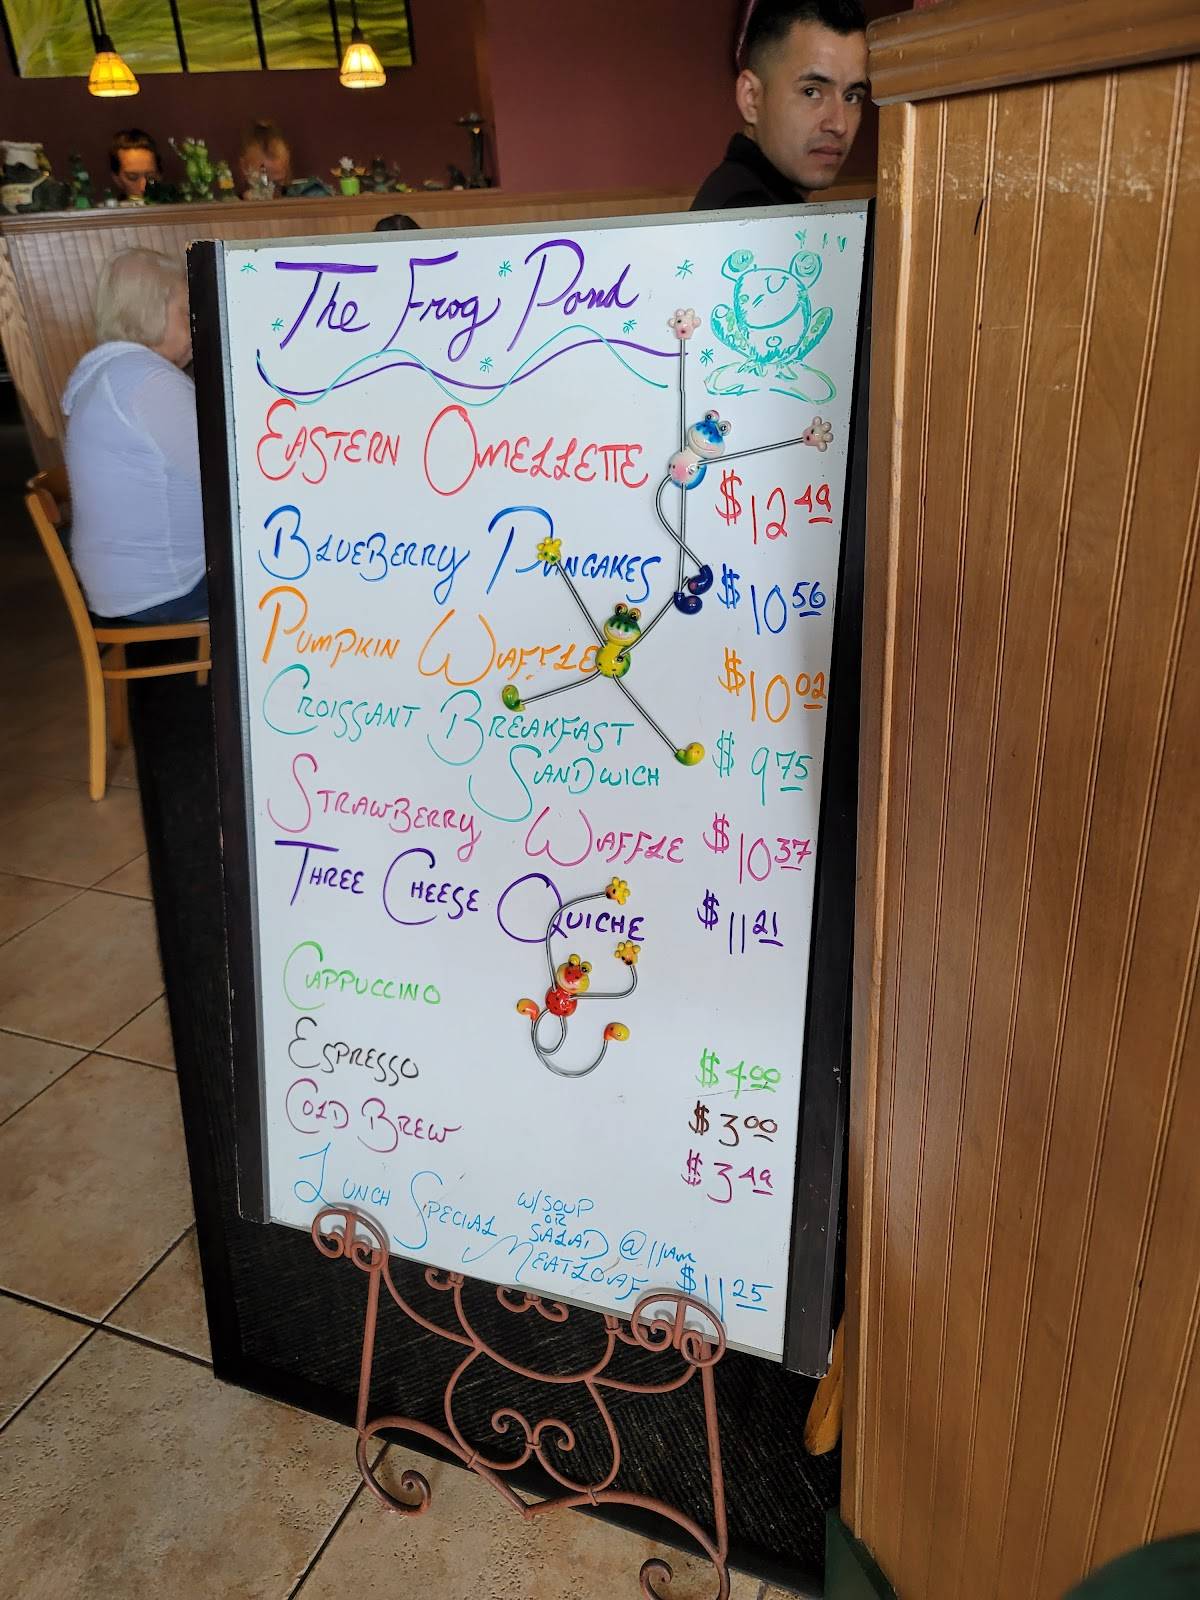 The Frog Pond
EASTERN OMELLETTE $12 49
BLUEBERRY PANCAKES $10 56
PUMPKIN WAFFLE $10 02
CROISSANT BREAKFAST
SANDWICH $9 75
STRAWBERRY WAFFLE $10 37
THREE CHEESE QUICHE $11 21
CAPPUCCINO $4 00
ESPRESSO $3 00
COLD BREW $3 49
LUNCH SPECIAL W/SOUP OR SALAD @ 11AM
MEATLOAF $11 25